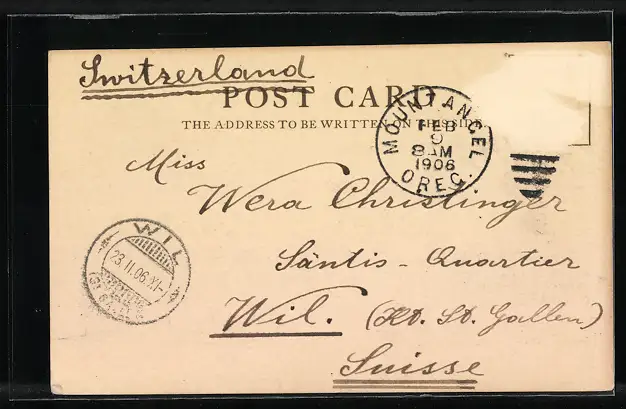 Switzerland
POST CARD
THE ADDRESS TO BE WRITTEN ON THIS SIDE
MOUNT ANGEL
FEB
9
8 AM
1906
OREG.
Miss
Wera Christinger
Säntis - Quartier
Wil. (Kt. St. Gallen)
Suisse
WIL
23.II.06.XI-